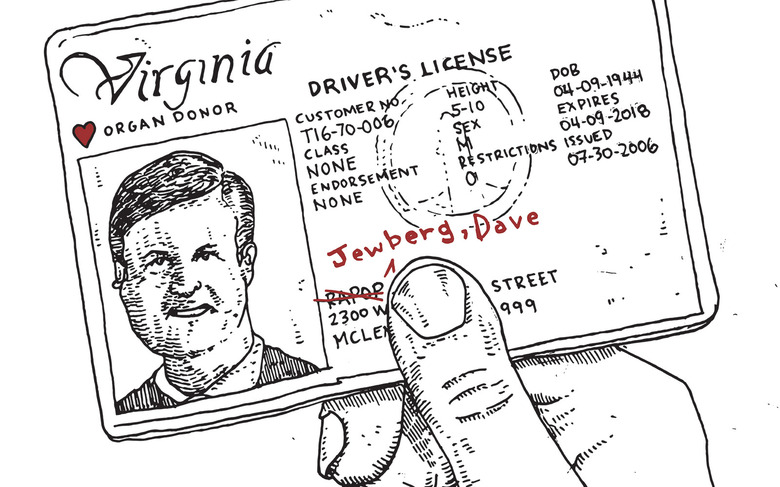 Virginia
DRIVER'S LICENSE
ORGAN DONOR
CUSTOMER NO.
T16-70-006
CLASS
NONE
ENDORSEMENT
NONE
HEIGHT
5-10
SEX
M
RESTRICTIONS
0
DOB
04-09-1944
EXPIRES
04-09-2018
ISSUED
07-30-2006
Jewberg, Dave
RAPOP
2300 W STREET
MCLE 999